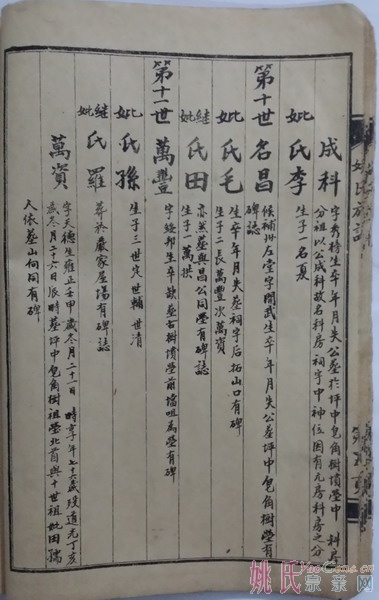 成科
字秀特生卒年月失公墓於坪中皂角樹墳塋中 科房
分祖以公成科故名科房祠宇中神位因有九房科房之分
妣氏李
生子一名夏
第十世 名昌
候補州左堂字聞武生卒年月失公墓坪中皂角樹塋有
碑誌
妣氏毛
生卒年月失墓祠宇后拓山口有碑
生子二長萬豐次萬資
継妣氏田
亦然墓與昌公同塋有碑誌
生子一萬拱
第十一世 萬豐
字經邦生卒缺墓古樹墳塋前擋咀為塋有碑
妣氏孫
生子三世定世輔世清
継妣氏羅
葬於嚴家屋場有碑誌
萬資
字天德生雍正壬甲歲冬月二十一日時享年七十六歲歿道光丁亥
歲冬月二十六日辰時墓坪中皂角樹祖塋北首與十世祖妣田孺
人依墓山向同有碑
姚氏族譜
姚氏宗亲网
YaoGens.cn